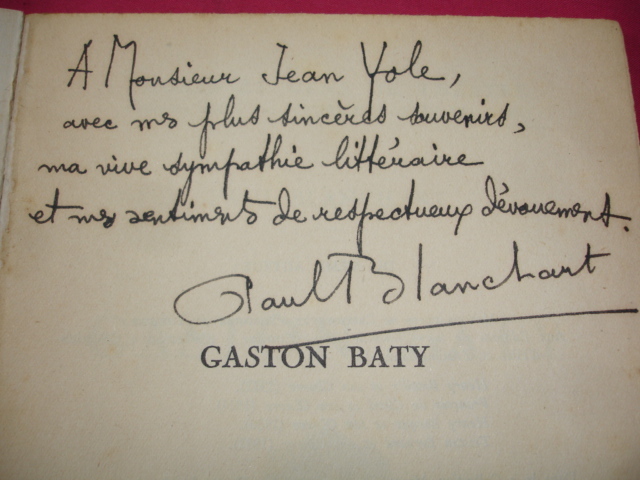 A Monsieur Jean Yole,
avec mes plus sincères souvenirs,
ma vive sympathie littéraire
et mes sentiments de respectueux dévouement.
Paul Blanchart
GASTON BATY